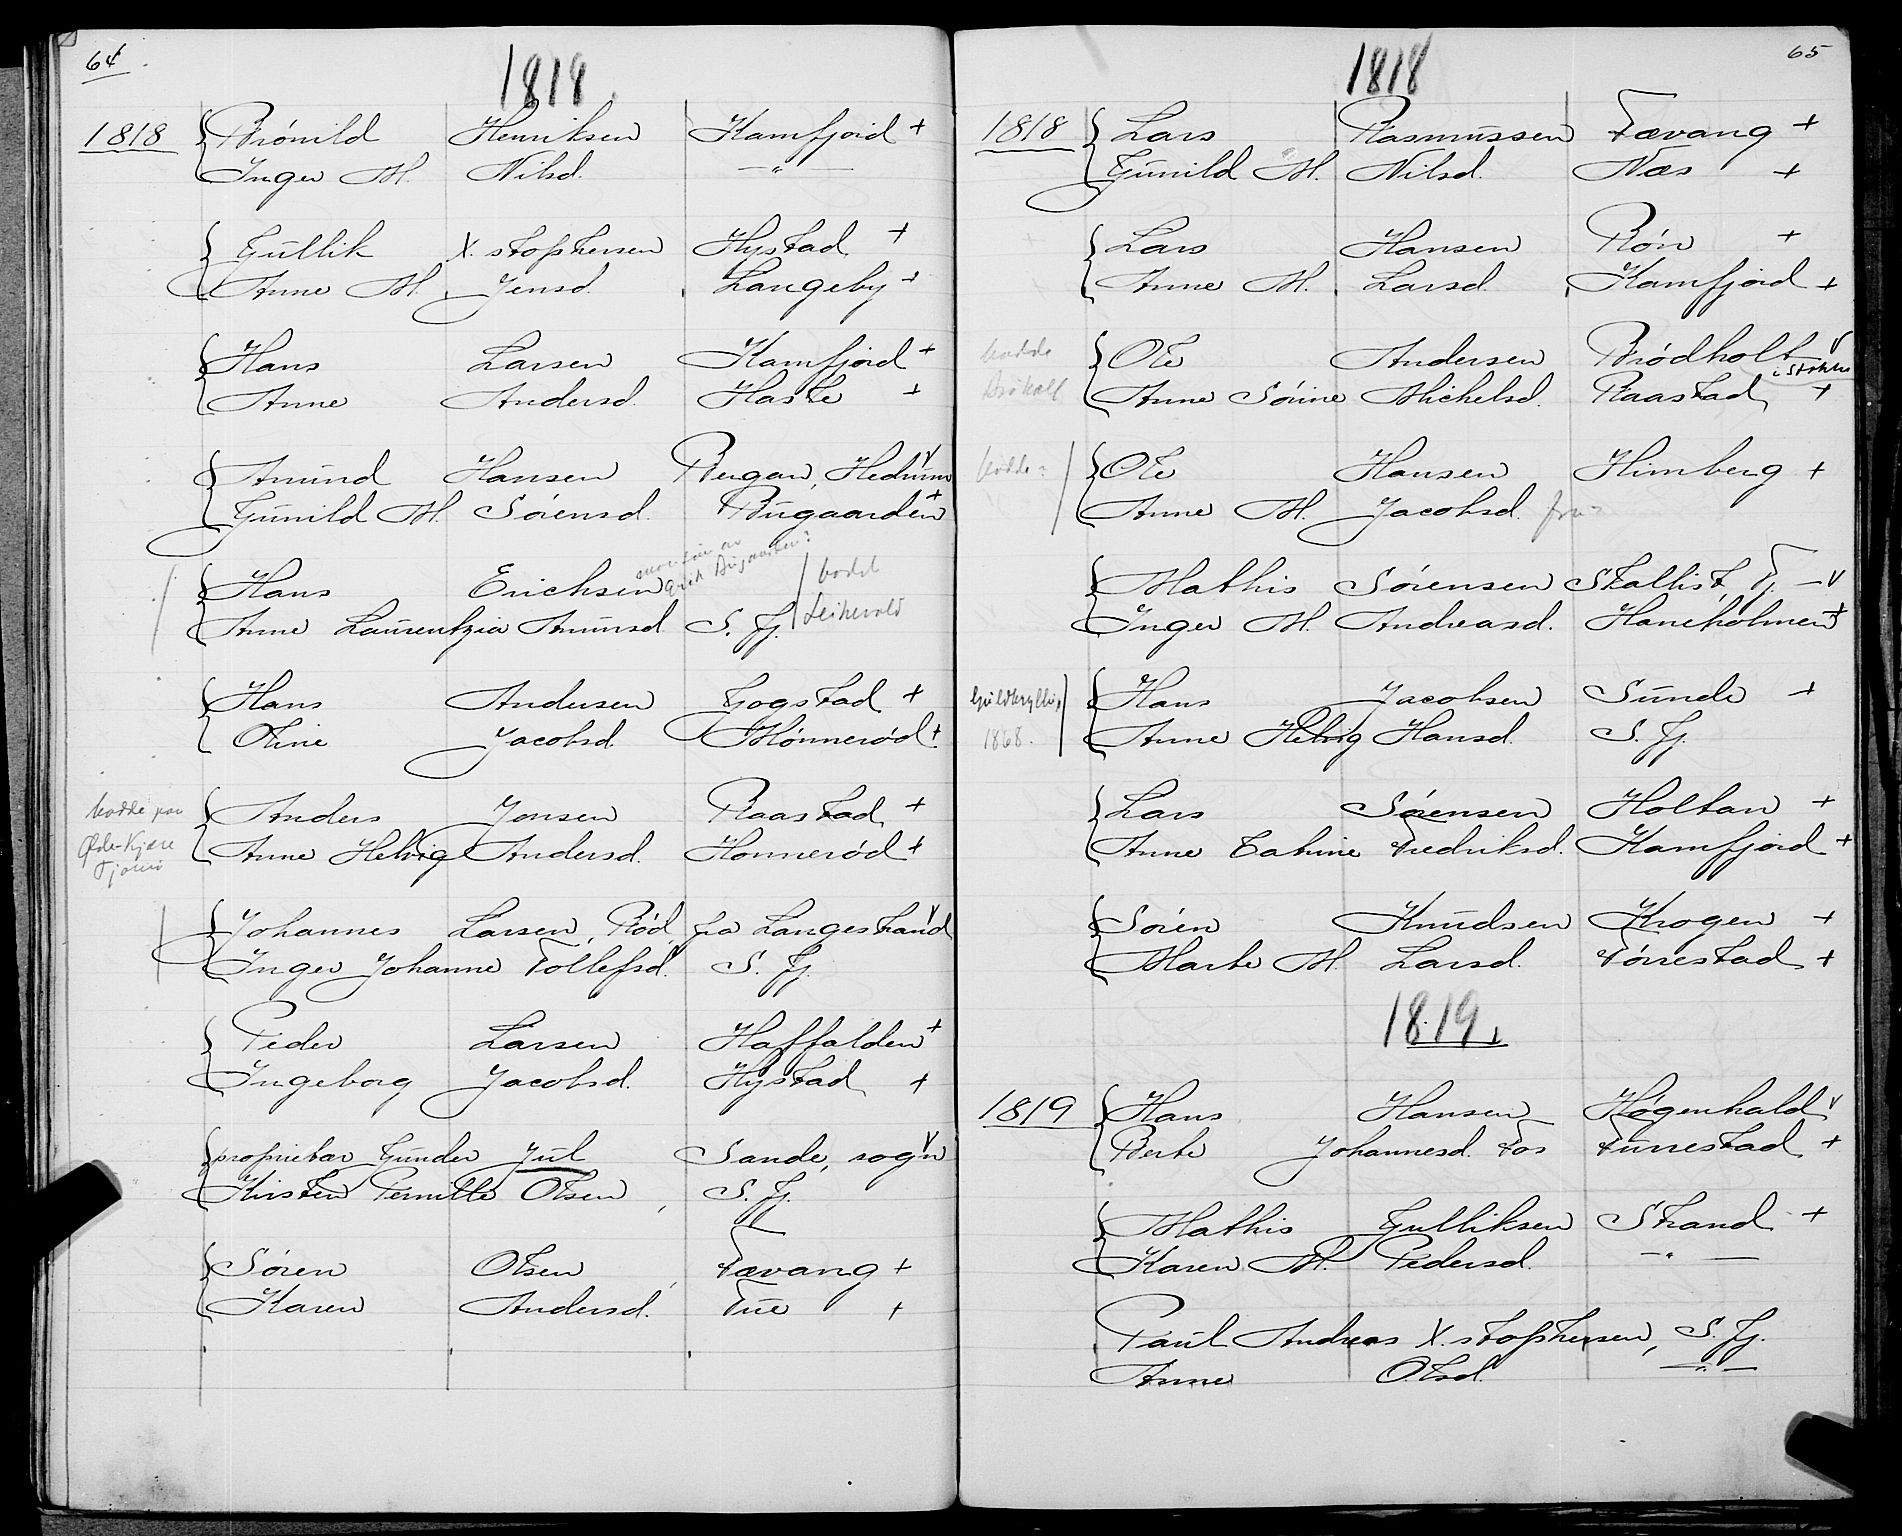 64
1818
1818 Brönild Henriksen Kamfjord +
Inger M. Nilsd. —"—
Gullik X.stofhersen Hystad +
Anne M. Jensd. Langeby +
Hans Larsen Kamfjord +
Anne Andersd. Hasle +
Amund Hansen Bergan, Hedrum v
Gunild M. Sörensd. Bugaarden +
Hans Erichsen bodde
Anne Laurentzia Amunsd. S. Fj.
Hans Andersen Gogstad +
Oline Jacobsd. Mönneröd +
bodde paa Anders Jonsen Raastad +
Anne Helvig Andersd. Honneröd +
Tjömö
Johannes Larsen, Röd, fra Langestrand v
Inger Johanne Tollefsd. S. Fj.
Peder Larsen Haffalden +
Ingeborg Jacobsd. Hystad +
proprietar Gunder Jul Sande, sogn v
Kirsten Pernille Olsen, S. Fj.
Sören Olsen, Tævang +
Karen Andersd. Tue +
65
1818
1818 Lars Rasmussen Tævang +
Gunild M. Nilsd. Næs +
Lars Hansen Rön +
Anne M. Larsd. Kamfjord +
bodde Ole Andersen Brödholt v
i Stokke
Anne Sörine Michelsd. Raastad +
bodde? Ole Hansen Himberg +
Anne M. Jacobsd. fra?
Mathis Sörensen Skallist, Tj. — v
Inger M. Andreasd. Haneholmen +
Guldbryllup Hans Jacobsen Sunde +
1868. Anne Helvig Hansd. S. Fj.
Lars Sörensen Holtan +
Anne Cahine Fredriksd. Kamfjord +
Sören Knudsen Krogen +
Marte M. Larsd. Törrestad +
1819.
1819 Hans Hansen Högenhald v
Berte Johannesd. Fos Furrestad +
Mathis Gulliksen Strand +
Karen M. Pedersd. —"—
Paul Andreas X.stofhersen, S. Fj.
Anne Olsd. —"—